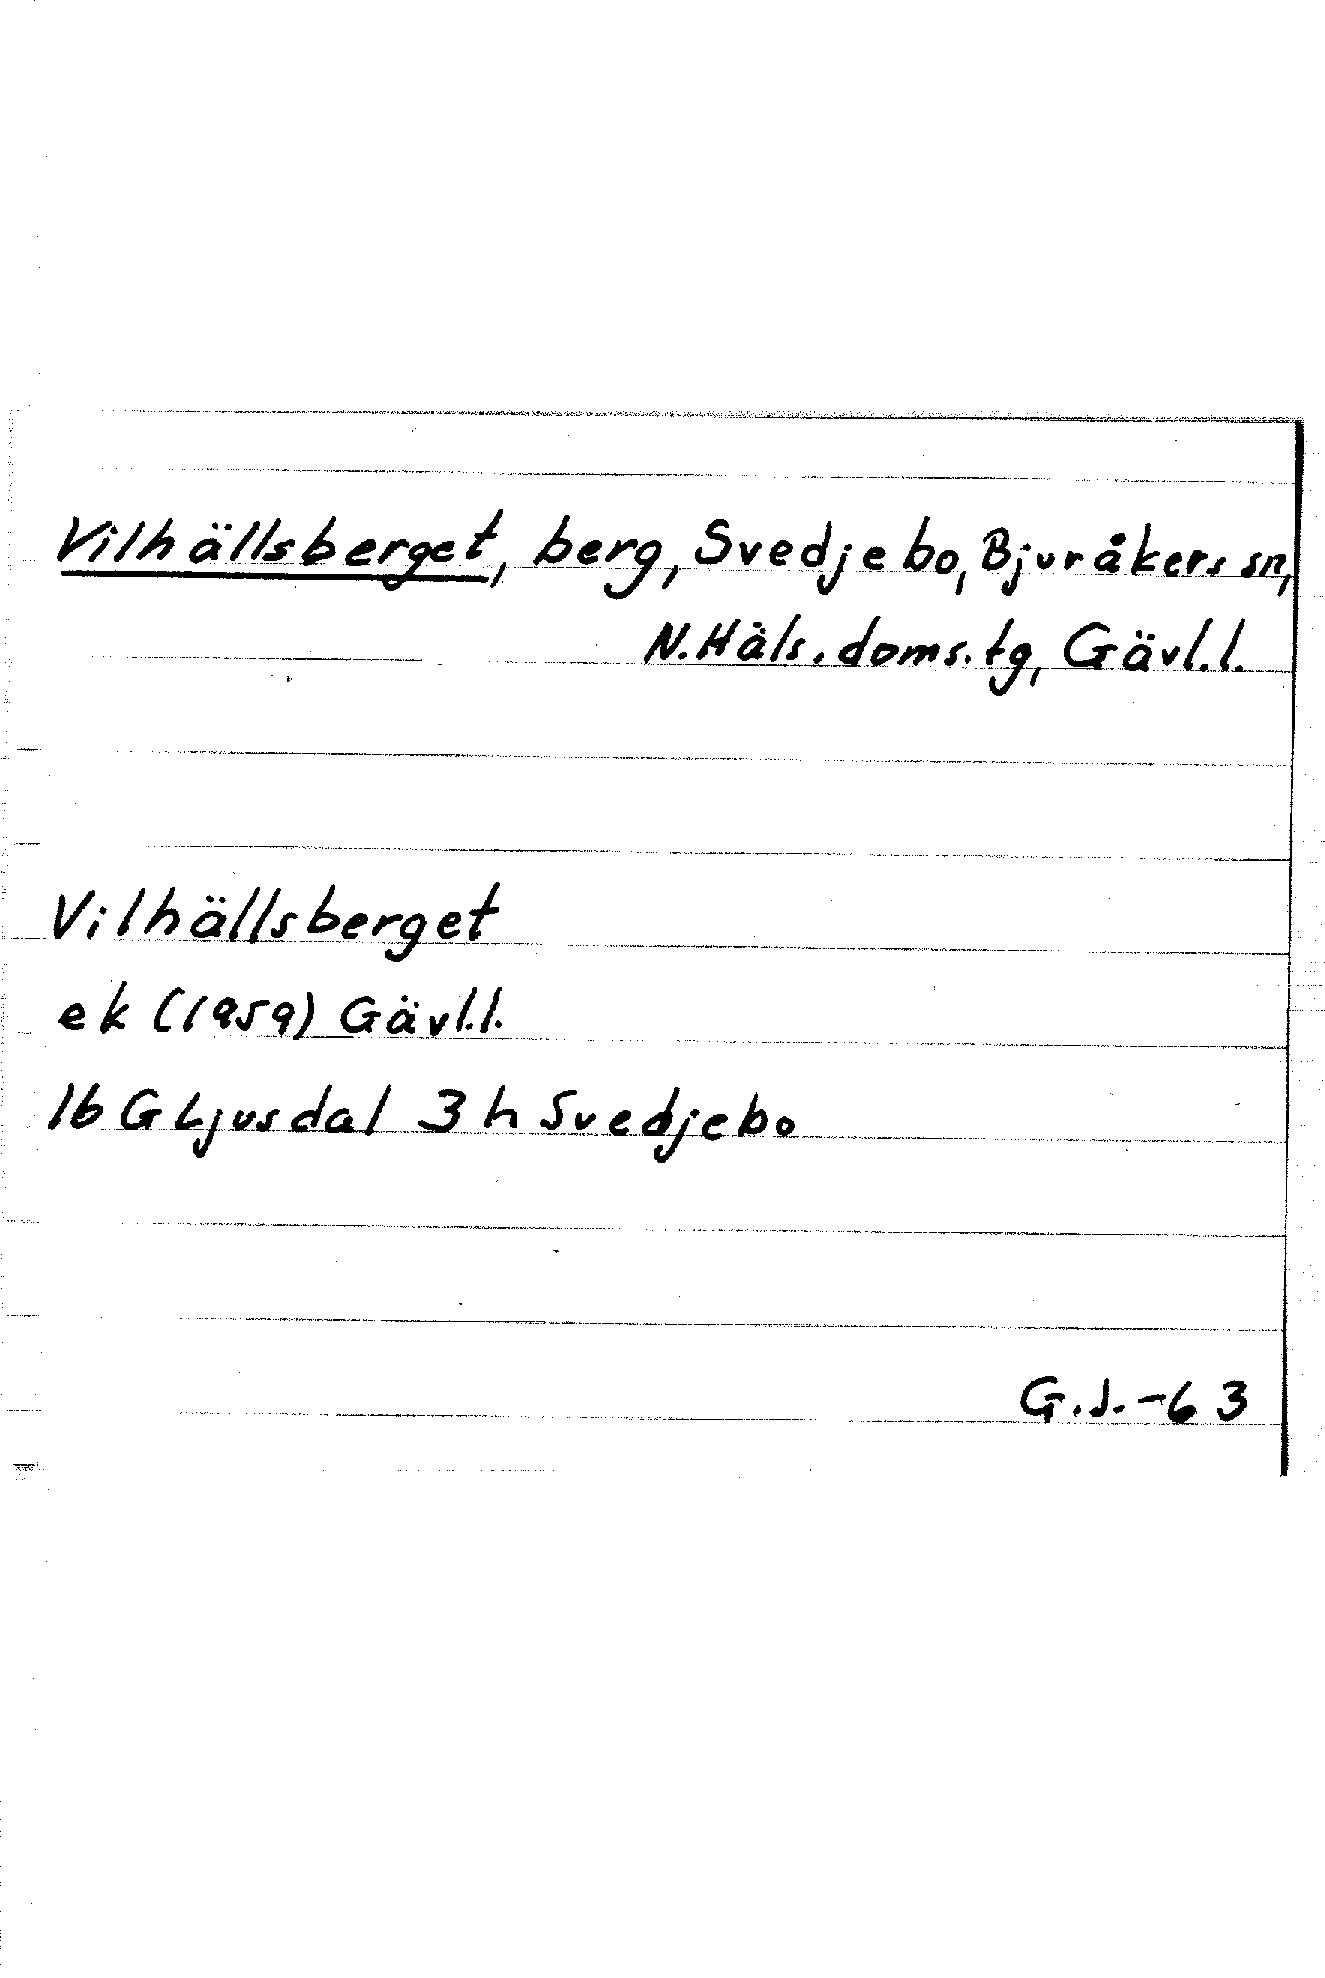 Vilhällsberget, berg, Svedjebo, Bjuråkers sn,
N. Häls. doms. tg, Gävl. l.
Vilhällsberget
ek (1959) Gävl. l.
16 G Ljusdal 3 h Svedjebo
G.J.-63